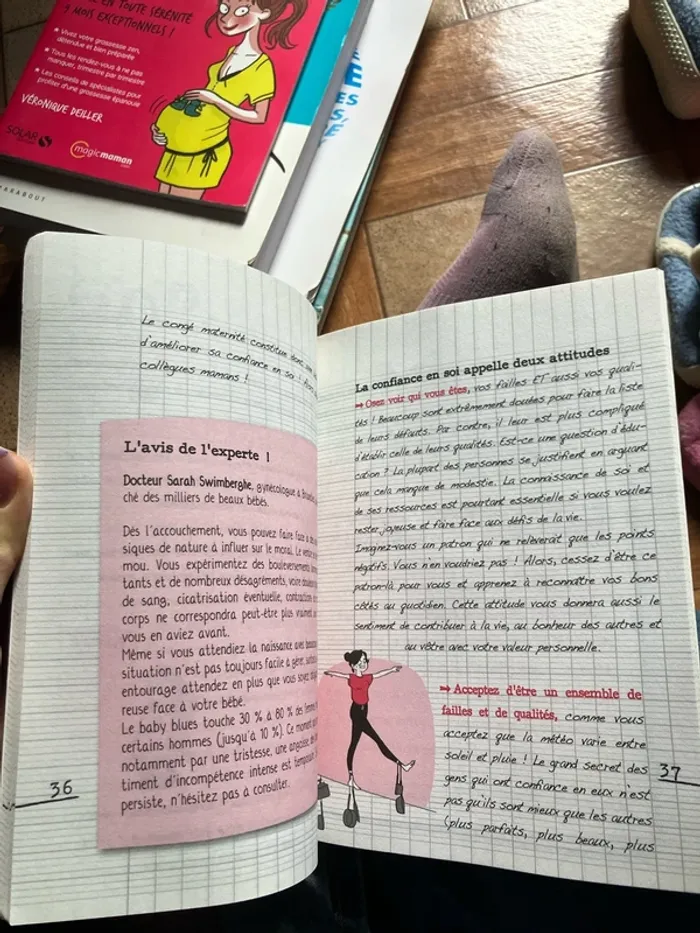 EN TOUTE SÉRÉNITÉ
9 MOIS EXCEPTIONNELS !
• Vivez votre grossesse zen,
détendue et bien préparée
• Tous les rendez-vous à ne pas
manquer, trimestre par trimestre
• Les conseils de spécialistes pour
profiter d'une grossesse épanouie
VÉRONIQUE DEILLER
SOLAR
magicmaman
.com
MARABOUT
Le congé maternité constitue donc une
d'améliorer sa confiance en soi !
collègues mamans !
L'avis de l'experte !
Docteur Sarah Swimberghe, gynécologue à
ché des milliers de beaux bébés.
Dès l'accouchement, vous pouvez faire face à
siques de nature à influer sur le moral. Le ventre
mou. Vous expérimentez des bouleversements
tants et de nombreux désagréments, voire
de sang, cicatrisation éventuelle, contractions
corps ne correspondra peut-être plus vraiment
vous en aviez avant.
Même si vous attendiez la naissance avec
situation n'est pas toujours facile à gérer, surtout
entourage attendez en plus que vous soyez
reuse face à votre bébé.
Le baby blues touche 30 % à 80 % des
certains hommes (jusqu'à 10 %). Ce
notamment par une tristesse, une angoisse,
timent d'incompétence intense est
persiste, n'hésitez pas à consulter.
36
La confiance en soi appelle deux attitudes
➙ Osez voir qui vous êtes, vos failles ET aussi vos quali-
tés ! Beaucoup sont extrêmement douées pour faire la liste
de leurs défauts. Par contre, il leur est plus compliqué
d'établir celle de leurs qualités. Est-ce une question d'édu-
cation ? La plupart des personnes se justifient en arguant
que cela manque de modestie. La connaissance de soi et
de ses ressources est pourtant essentielle si vous voulez
rester joyeuse et faire face aux défis de la vie.
Imaginez-vous un patron qui ne relèverait que les points
négatifs. Vous n'en voudriez pas ! Alors, cessez d'être ce
patron-là pour vous et apprenez à reconnaître vos bons
côtés au quotidien. Cette attitude vous donnera aussi le
sentiment de contribuer à la vie, au bonheur des autres et
au vôtre avec votre valeur personnelle.
➙ Acceptez d'être un ensemble de
failles et de qualités, comme vous
acceptez que la météo varie entre
soleil et pluie ! Le grand secret des
gens qui ont confiance en eux n'est
pas qu'ils sont mieux que les autres
(plus parfaits, plus beaux, plus
37